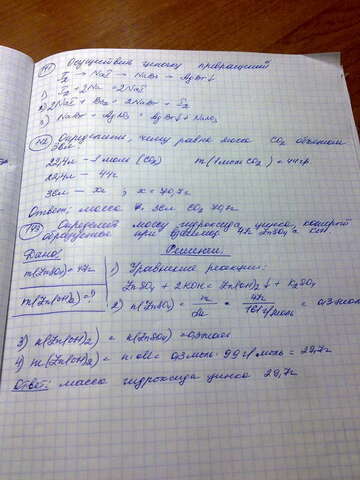 №1 Осуществить цепочку превращений
I₂ → NaI → NaBr → AgBr↓
1) I₂ + 2Na = 2NaI
2) 2NaI + Br₂ = 2NaBr + I₂
3) NaBr + AgNO₃ = AgBr↓ + NaNO₃
№2 Определить, чему равна масса CO₂ объемом
36л
22,4л – 1 моль (CO₂) m(1моль CO₂) = 44гр.
22,4л – 44г
36л – xг ; x = 70,7г
Ответ: масса 36л CO₂ 70,7г
№3 Определить массу гидроксида цинка, который
образуется при взаимод. 47г ZnSO₄ с KOH
Дано: Решение:
m(ZnSO₄) = 47г
m(Zn(OH)₂) = ?
1) Уравнение реакции:
ZnSO₄ + 2KOH = Zn(OH)₂↓ + K₂SO₄
2) n(ZnSO₄) = m/M = 47г/161г/моль = 0,3моль
3) n(Zn(OH)₂) = n(ZnSO₄) = 0,3моль
4) m(Zn(OH)₂) = n·M = 0,3моль·99г/моль = 29,7г
Ответ: масса гидроксида цинка 29,7г